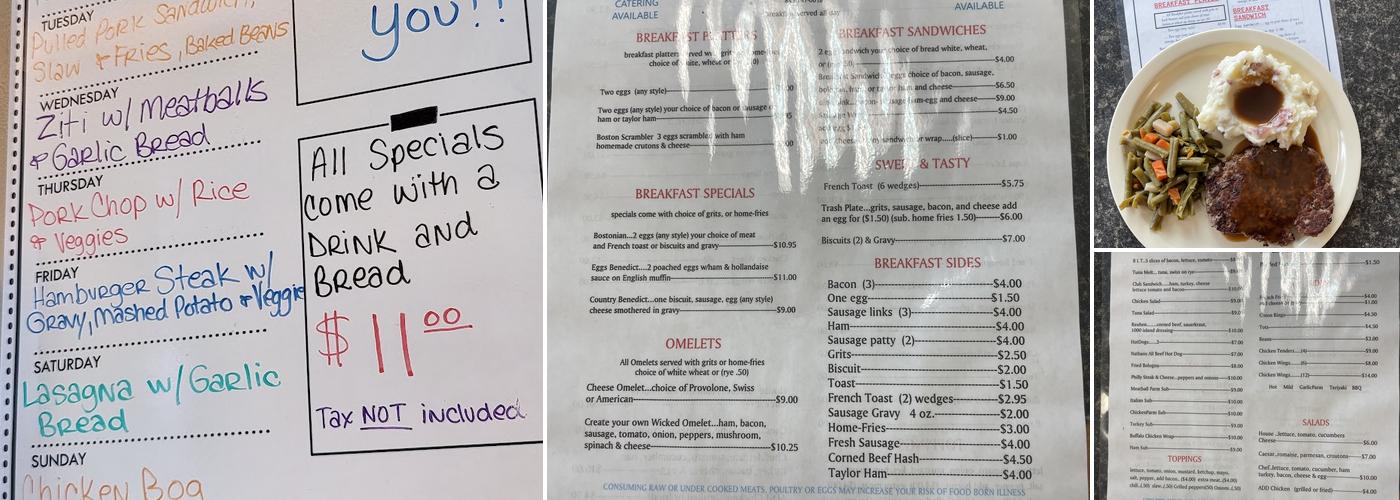 TUESDAY
Pulled Pork Sandwich,
Slaw & Fries, Baked Beans
WEDNESDAY
Ziti w/ Meatballs
& Garlic Bread
THURSDAY
Pork Chop w/ Rice
& Veggies
FRIDAY
Hamburger Steak w/
Gravy, Mashed Potato & Veggie
SATURDAY
Lasagna w/ Garlic
Bread
SUNDAY
Chicken Bog
you!!
All Specials
come with a
DRINK AND
Bread
$11.00
Tax NOT included
CATERING
AVAILABLE
breakfast served all day
AVAILABLE
BREAKFAST PLATTERS
breakfast platters served with grits or home-fries
choice of white, wheat or
Two eggs (any style)
Two eggs (any style) your choice of bacon or sausage
ham or taylor ham
Boston Scrambler 3 eggs scrambled with ham
homemade crutons & cheese
BREAKFAST SPECIALS
specials come with choice of grits, or home-fries
Bostonian...2 eggs (any style) your choice of meat
and French toast or biscuits and gravy $10.95
Eggs Benedict....2 poached eggs wham & hollandaise
sauce on English muffin $11.00
Country Benedict...one biscuit, sausage, egg (any style)
cheese smothered in gravy $9.00
OMELETS
All Omelets served with grits or home-fries
choice of white wheat or (rye .50)
Cheese Omelet...choice of Provolone, Swiss
or American $9.00
Create your own Wicked Omelet...ham, bacon,
sausage, tomato, onion, peppers, mushroom,
spinach & cheese $10.25
BREAKFAST SANDWICHES
2 egg sandwich your choice of bread white, wheat,
$4.00
Breakfast Sandwich eggs choice of bacon, sausage,
ham or taylor ham and cheese $6.50
ham-egg and cheese $9.00
$4.50
sandwich or wrap.....(slice) $1.00
SWEET & TASTY
French Toast (6 wedges) $5.75
Trash Plate...grits, sausage, bacon, and cheese add
an egg for ($1.50) (sub. home fries 1.50) $6.00
Biscuits (2) & Gravy $7.00
BREAKFAST SIDES
Bacon (3) $4.00
One egg $1.50
Sausage links (3) $4.00
Ham $4.00
Sausage patty (2) $4.00
Grits $2.50
Biscuit $2.00
Toast $1.50
French Toast (2) wedges $2.95
Sausage Gravy 4 oz. $2.00
Home-Fries $3.00
Fresh Sausage $4.00
Corned Beef Hash $4.50
Taylor Ham $4.00
CONSUMING RAW OR UNDER COOKED MEATS, POULTRY OR EGGS MAY INCREASE YOUR RISK OF FOOD BORN ILLNESS
BREAKFAST
SANDWICH
B L T..5 slices of bacon, lettuce, tomato
Tuna Melt... tuna, swiss on rye
Club Sandwich.....ham, turkey, cheese
lettuce tomato and bacon
Chicken Salad
Tuna Salad
Reuben......corned beef, sauerkraut,
1000 island dressing $10.00
HotDogs.....2 $7.00
Nathans All Beef Hot Dog $7.00
Fried Bologna $8.00
Philly Steak & Cheese...peppers and onions $10.00
Meatball Parm Sub $9.00
Italian Sub $10.00
ChickenParm Sub $10.00
Turkey Sub $9.00
Buffalo Chicken Wrap $10.00
Ham Sub $9.00
TOPPINGS
lettuce, tomato, onion, mustard, ketchup, mayo,
$1.50
$4.00
Onion Rings $4.50
Tots $4.50
Beans $3.00
Chicken Tenders....(4) $9.00
Chicken Wings.....(6) $8.00
Chicken Wings.....(12) $14.00
Hot Mild GarlicParm Teriyaki BBQ
SALADS
House ..lettuce, tomato, cucumbers
Cheese $6.00
Caesar..romaine, parmesan, croutons $7.00
Chef..lettuce, tomato, cucumber, ham
turkey, bacon, cheese & egg $10.00
ADD Chicken (grilled or fried) $4.00